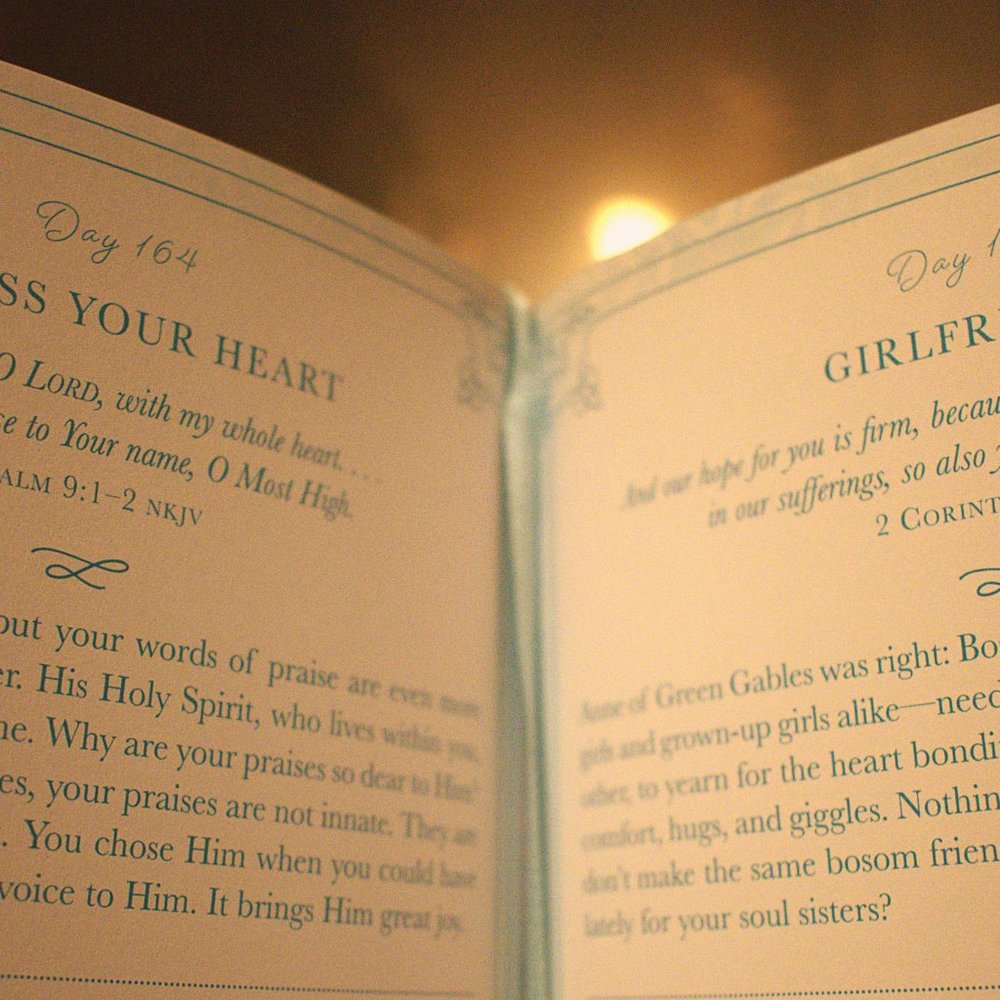 Day 164
SS YOUR HEART
O LORD, with my whole heart. . . .
se to Your name, O Most High.
ALM 9:1–2 NKJV
out your words of praise are even more
er. His Holy Spirit, who lives within you,
ne. Why are your praises so dear to Him?
es, your praises are not innate. They are
. You chose Him when you could have
voice to Him. It brings Him great joy.
Day 1
GIRLFR
And our hope for you is firm, becau
in our sufferings, so also y
2 CORINT
Anne of Green Gables was right: Bo
girls and grown-up girls alike—need
other, to yearn for the heart bondi
comfort, hugs, and giggles. Nothin
don't make the same bosom frien
lately for your soul sisters?